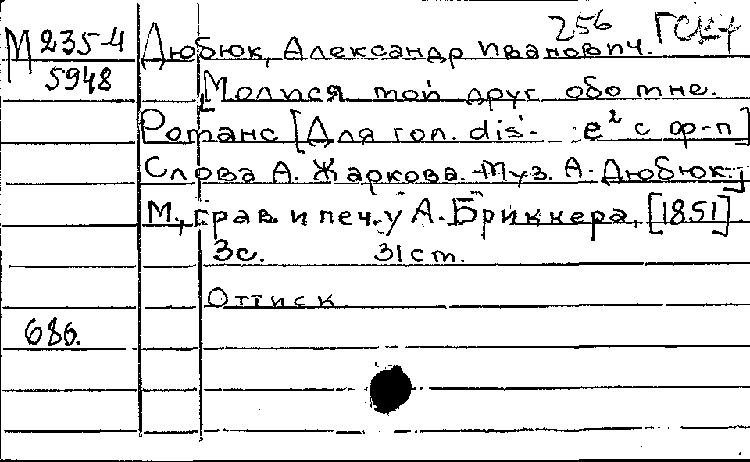 256 ГСК4
М 235-4 Дюбюк, Александр Иванович.
5948 Молися мой друг обо мне.
Романс [Для гол. dis'- e² с ф-п]
Слова А. Жаркова. Муз. А. Дюбюк.]
М., грав. и печ. у А. Бриккера, [1851]
3 с. 31 см.
Оттиск
686.